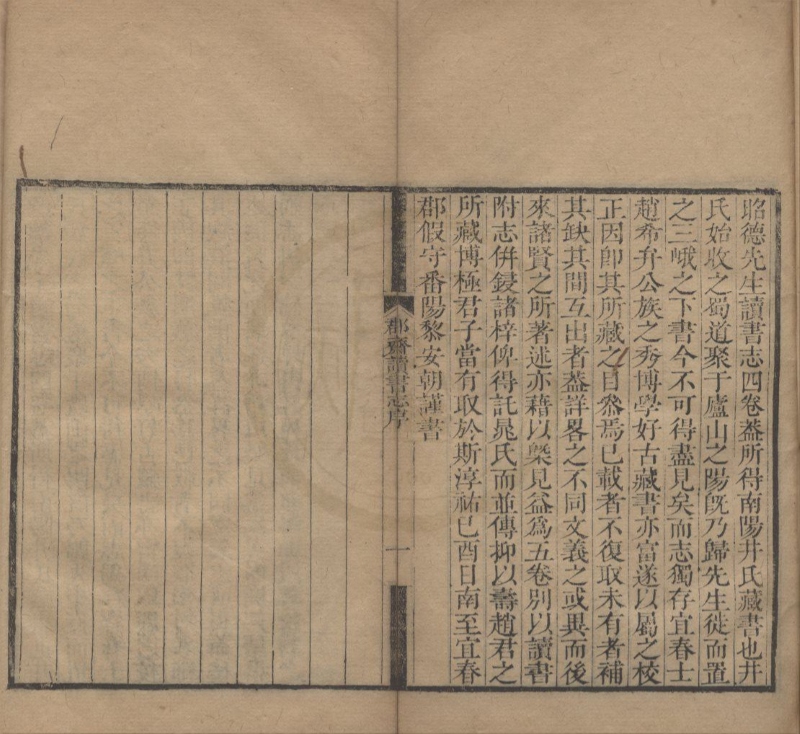 昭德先生讀書志四卷葢所得南陽井氏藏書也井
氏始收之蜀道聚于廬山之陽旣乃歸先生徙而置
之三峨之下書今不可得盡見矣而志獨存宜春士
趙希弁公族之秀博學好古藏書亦富遂以屬之校
正因卽其所藏之目叅焉已載者不復取未有者補
其缺其間互出者葢詳畧之不同文義之或異而後
來諸賢之所著述亦藉以槩見益爲五卷別以讀書
附志併鋟諸梓俾得託晁氏而並傳抑以壽趙君之
所藏博極君子當有取於斯淳祐己酉日南至宜春
郡假守番陽黎安朝謹書
郡齋讀書志序
一